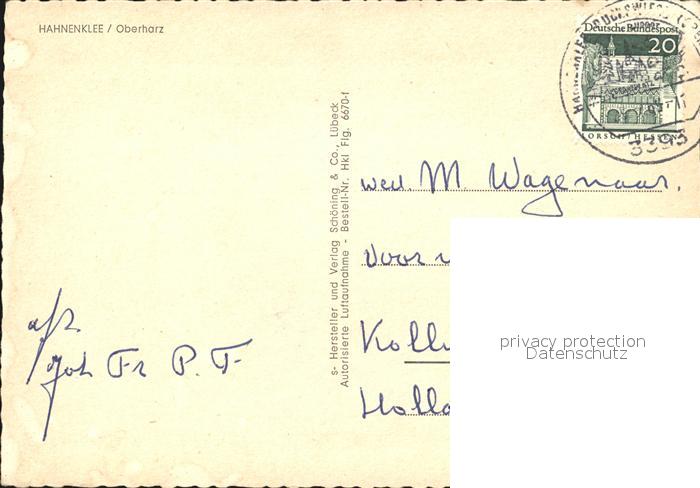 HAHNENKLEE / Oberharz
Deutsche Bundespost
20
LORSCH/HESSEN
3393
s- Hersteller und Verlag Schöning & Co., Lübeck
Autorisierte Luftaufnahme - Bestell-Nr. Hkl Flg. 6670-f
wed. M. Wagenaar.
Voor
Koll
Holla
privacy protection
Datenschutz
afz.
Joh Fr P. F